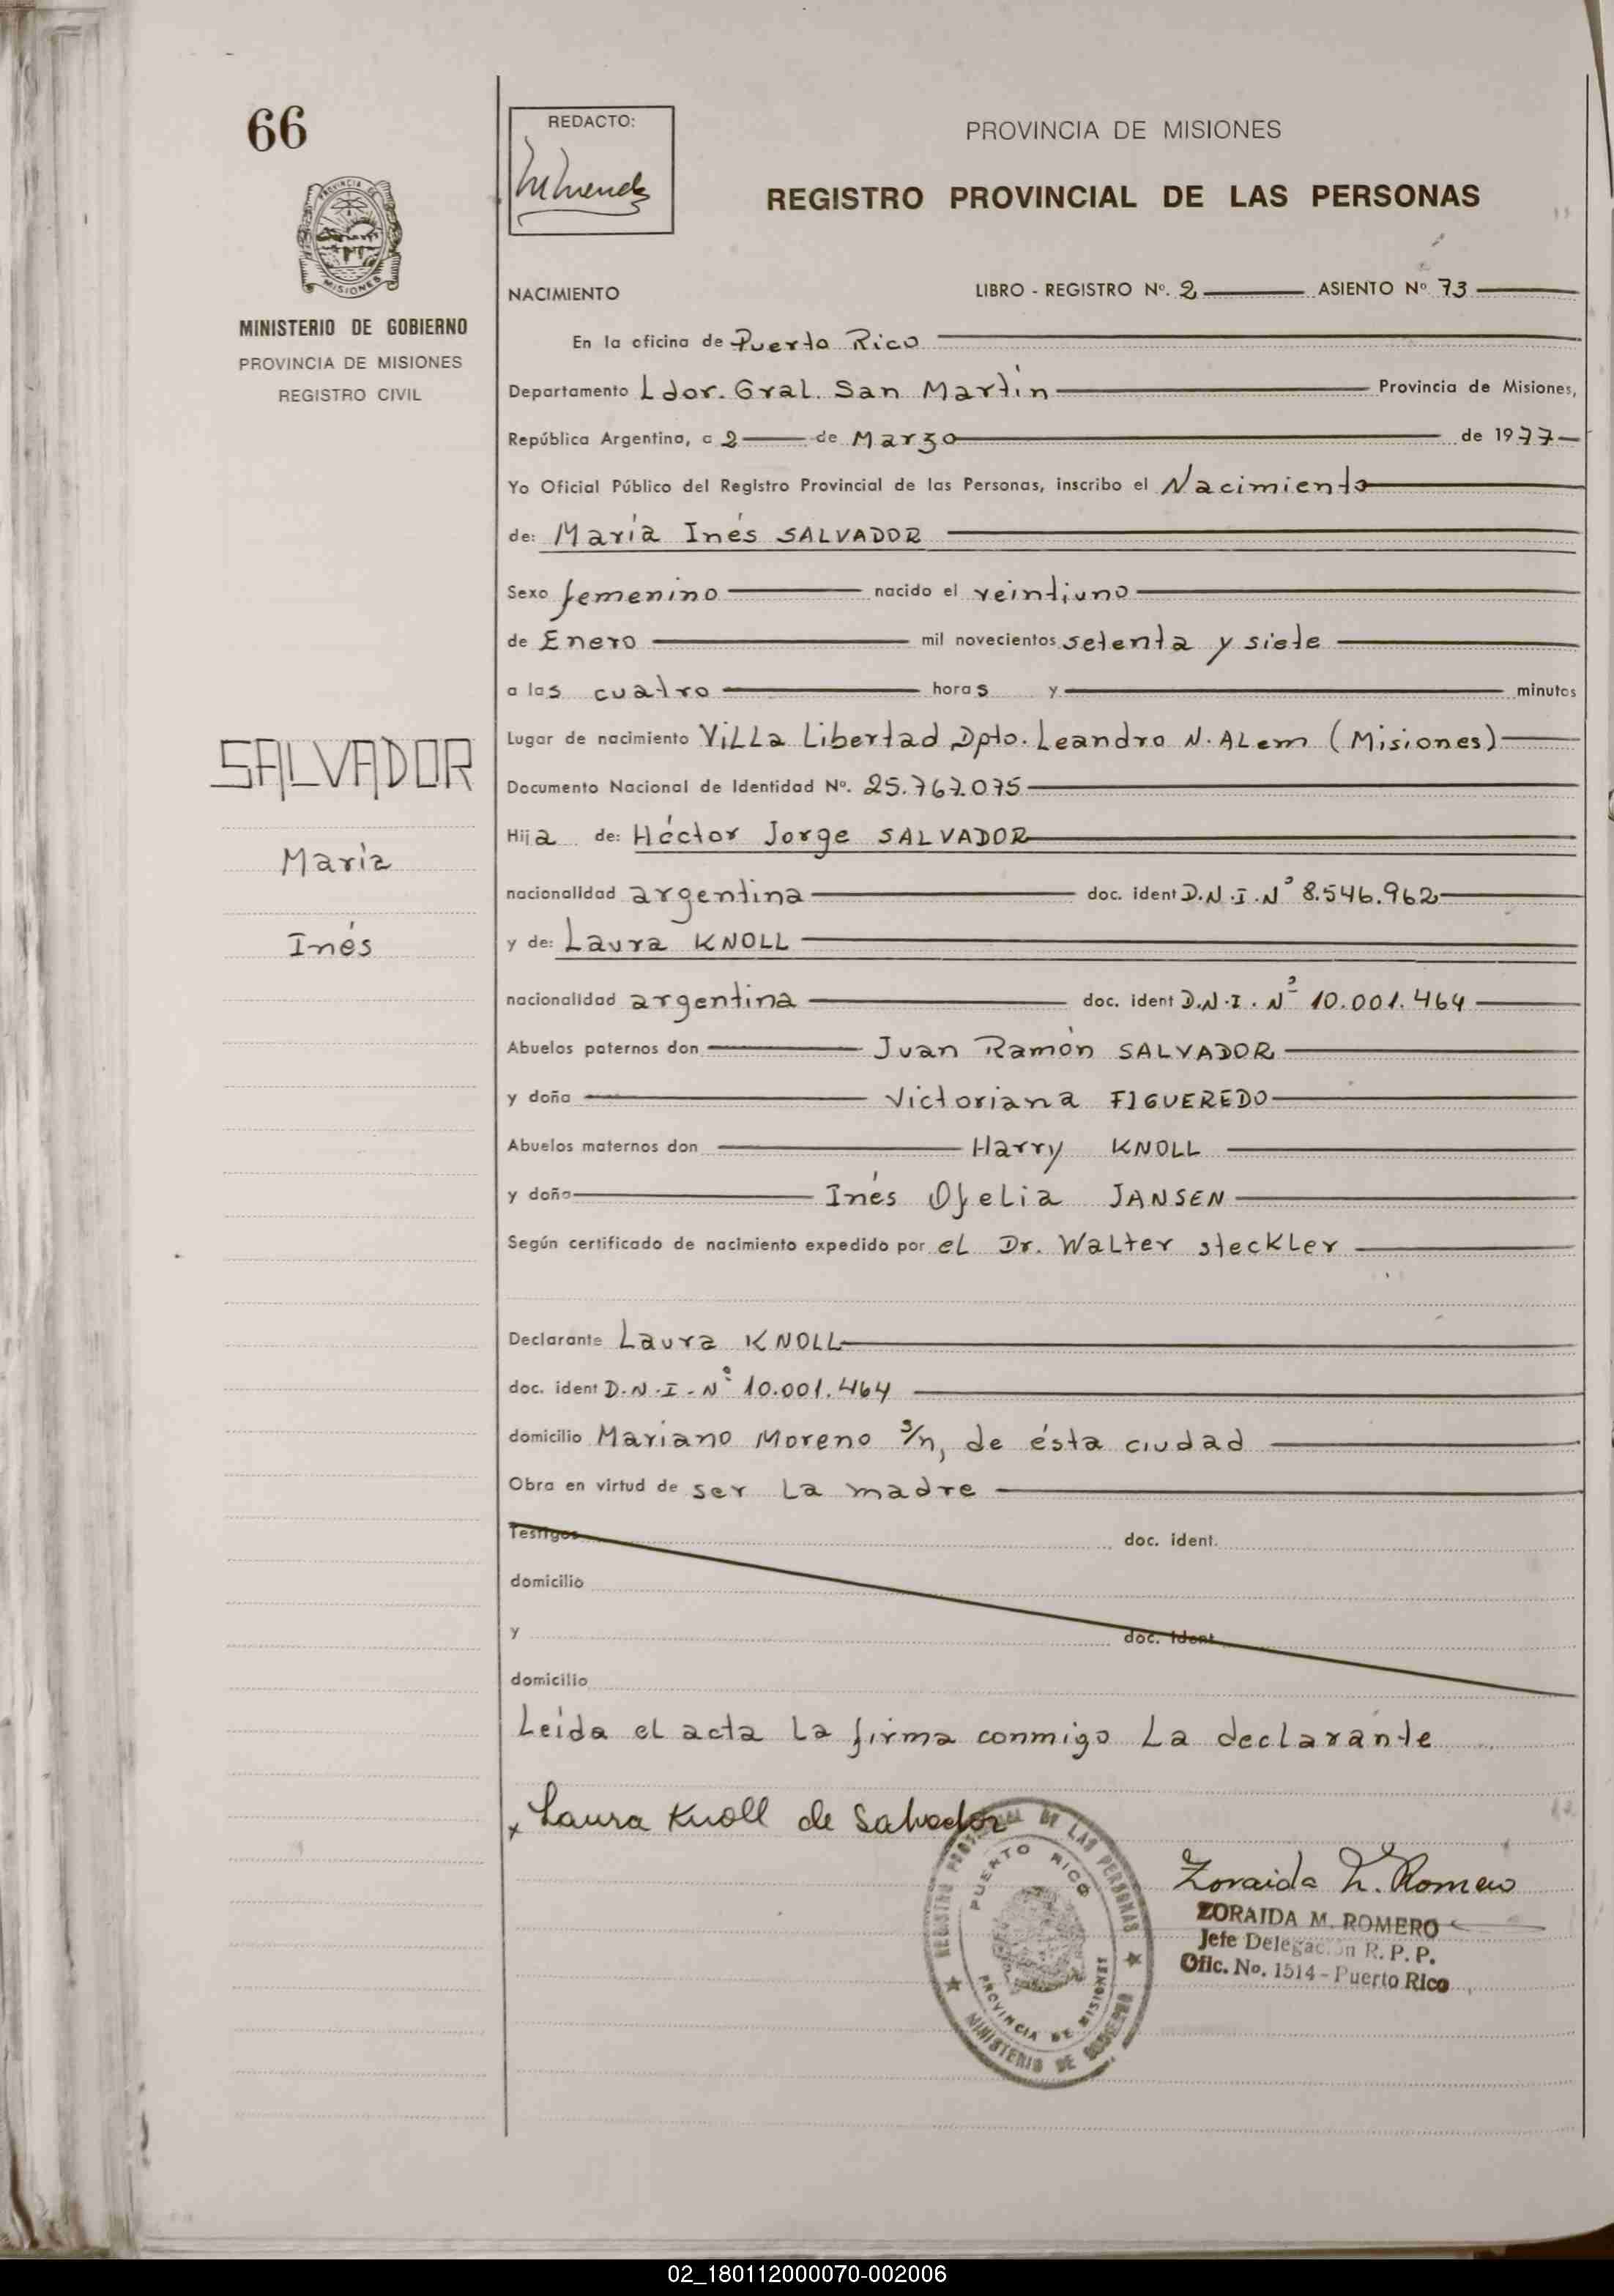 66
PROVINCIA DE
MISIONES
MINISTERIO DE GOBIERNO
PROVINCIA DE MISIONES
REGISTRO CIVIL
SALVADOR
María
Inés
REDACTO:
PROVINCIA DE MISIONES
REGISTRO PROVINCIAL DE LAS PERSONAS
NACIMIENTO LIBRO - REGISTRO Nº. 2 ASIENTO Nº 73
En la oficina de Puerto Rico
Departamento Ldor. Gral. San Martín Provincia de Misiones,
República Argentina, a 2 de Marzo de 1977
Yo Oficial Público del Registro Provincial de las Personas, inscribo el Nacimiento
de: María Inés SALVADOR
Sexo femenino nacido el veintiuno
de Enero mil novecientos setenta y siete
a las cuatro horas y minutos
Lugar de nacimiento Villa Libertad Dpto. Leandro N. Alem (Misiones)
Documento Nacional de Identidad Nº. 25.767.075
Hija de: Héctor Jorge SALVADOR
nacionalidad argentina doc. ident D.N.I. Nº 8.546.962
y de: Laura KNOLL
nacionalidad argentina doc. ident D.N.I. Nº 10.001.464
Abuelos paternos don Juan Ramón SALVADOR
y doña Victoriana FIGUEREDO
Abuelos maternos don Harry KNOLL
y doña Inés Ofelia JANSEN
Según certificado de nacimiento expedido por el Dr. Walter Steckler
Declarante Laura KNOLL
doc. ident D.N.I. Nº 10.001.464
domicilio Mariano Moreno s/n, de ésta ciudad
Obra en virtud de ser la madre
Testigos doc. ident.
domicilio
y doc. ident
domicilio
Leída el acta la firma conmigo la declarante
x Laura Knoll de Salvador
REGISTRO PROVINCIAL DE LAS PERSONAS
PUERTO RICO
PROVINCIA DE MISIONES
MINISTERIO DE GOBIERNO
Zoraida M. Romero
ZORAIDA M. ROMERO
Jefe Delegación R. P. P.
Ofic. No. 1514 - Puerto Rico
02_180112000070-002006